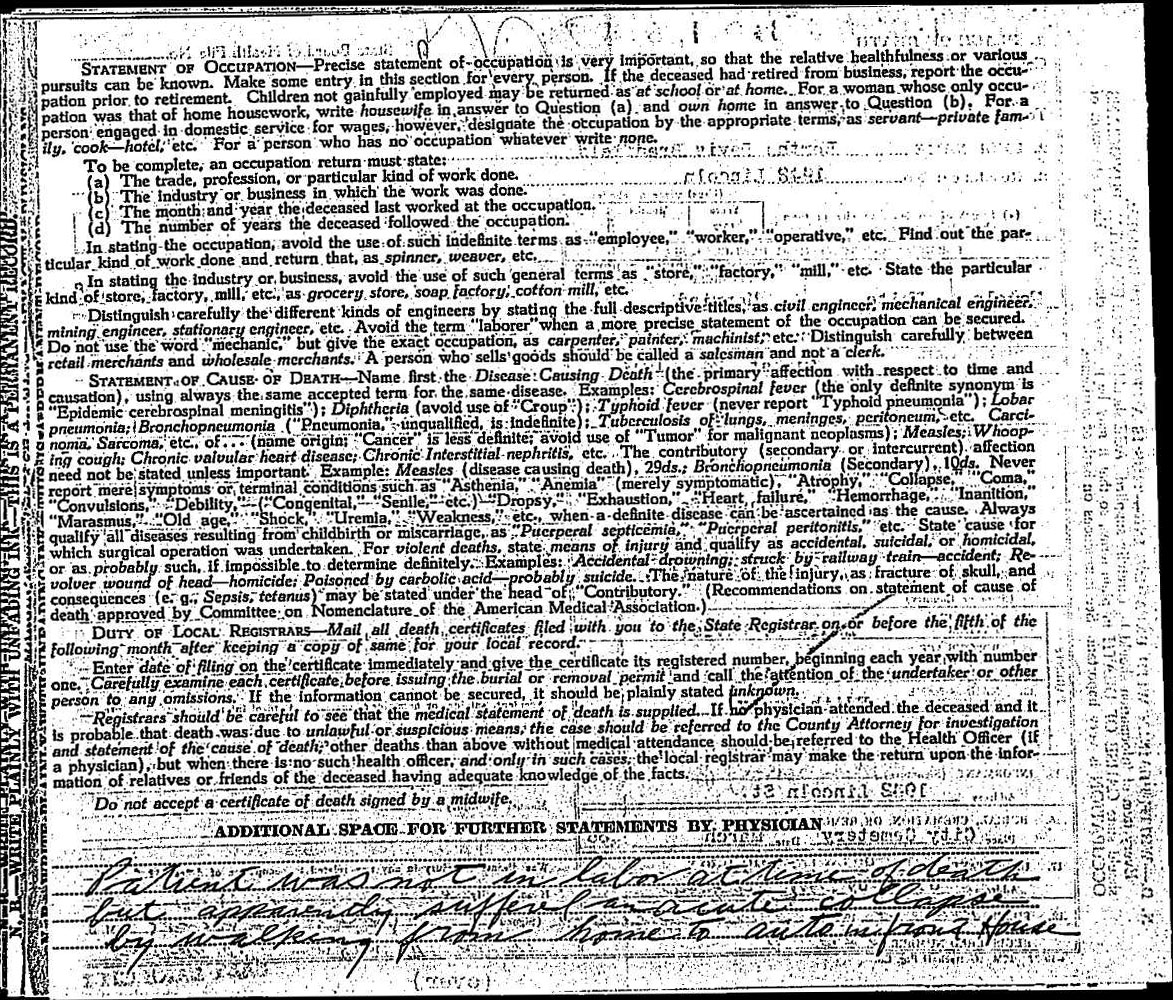 STATEMENT OF OCCUPATION—Precise statement of occupation is very important, so that the relative healthfulness or various
pursuits can be known. Make some entry in this section for every person. If the deceased had retired from business, report the occu-
pation prior to retirement. Children not gainfully employed may be returned as at school or at home. For a woman whose only occu-
pation was that of home housework, write housewife in answer to Question (a) and own home in answer to Question (b). For a
person engaged in domestic service for wages, however, designate the occupation by the appropriate terms, as servant—private fam-
ily, cook—hotel, etc. For a person who has no occupation whatever write none.
To be complete, an occupation return must state:
(a) The trade, profession, or particular kind of work done.
(b) The industry or business in which the work was done.
(c) The month and year the deceased last worked at the occupation.
(d) The number of years the deceased followed the occupation.
In stating the occupation, avoid the use of such indefinite terms as "employee," "worker," "operative," etc. Find out the par-
ticular kind of work done and return that, as spinner, weaver, etc.
In stating the industry or business, avoid the use of such general terms as "store," "factory," "mill," etc. State the particular
kind of store, factory, mill, etc., as grocery store, soap factory, cotton mill, etc.
Distinguish carefully the different kinds of engineers by stating the full descriptive titles, as civil engineer, mechanical engineer,
mining engineer, stationary engineer, etc. Avoid the term "laborer" when a more precise statement of the occupation can be secured.
Do not use the word "mechanic," but give the exact occupation, as carpenter, painter, machinist, etc. Distinguish carefully between
retail merchants and wholesale merchants. A person who sells goods should be called a salesman and not a clerk.
STATEMENT OF CAUSE OF DEATH—Name first the Disease Causing Death (the primary affection with respect to time and
causation), using always the same accepted term for the same disease. Examples: Cerebrospinal fever (the only definite synonym is
"Epidemic cerebrospinal meningitis"); Diphtheria (avoid use of "Croup"); Typhoid fever (never report "Typhoid pneumonia"); Lobar
pneumonia; Bronchopneumonia ("Pneumonia," unqualified, is indefinite); Tuberculosis of lungs, meninges, peritoneum, etc. Carci-
noma, Sarcoma, etc., of... (name origin; "Cancer" is less definite; avoid use of "Tumor" for malignant neoplasms); Measles; Whoop-
ing cough; Chronic valvular heart disease; Chronic Interstitial nephritis, etc. The contributory (secondary or intercurrent) affection
need not be stated unless important. Example: Measles (disease causing death), 29ds.; Bronchopneumonia (Secondary), 10ds. Never
report mere symptoms or terminal conditions such as "Asthenia," "Anemia" (merely symptomatic), "Atrophy," "Collapse," "Coma,"
"Convulsions," "Debility," ("Congenital," "Senile," etc.) "Dropsy," "Exhaustion," "Heart failure," "Hemorrhage," "Inanition,"
"Marasmus," "Old age," "Shock," "Uremia," "Weakness," etc., when a definite disease can be ascertained as the cause. Always
qualify all diseases resulting from childbirth or miscarriage, as "Puerperal septicemia," "Puerperal peritonitis," etc. State cause for
which surgical operation was undertaken. For violent deaths, state means of injury and qualify as accidental, suicidal, or homicidal,
or as probably such, if impossible to determine definitely. Examples: Accidental drowning; struck by railway train—accident; Re-
volver wound of head—homicide; Poisoned by carbolic acid—probably suicide. The nature of the injury, as fracture of skull, and
consequences (e. g., Sepsis, tetanus) may be stated under the head of "Contributory." (Recommendations on statement of cause of
death approved by Committee on Nomenclature of the American Medical Association.)
DUTY OF LOCAL REGISTRARS—Mail all death certificates filed with you to the State Registrar on or before the fifth of the
following month after keeping a copy of same for your local record.
Enter date of filing on the certificate immediately and give the certificate its registered number, beginning each year with number
one. Carefully examine each certificate before issuing the burial or removal permit and call the attention of the undertaker or other
person to any omissions. If the information cannot be secured, it should be plainly stated unknown.
Registrars should be careful to see that the medical statement of death is supplied. If no physician attended the deceased and it
is probable that death was due to unlawful or suspicious means, the case should be referred to the County Attorney for investigation
and statement of the cause of death; other deaths than above without medical attendance should be referred to the Health Officer (if
a physician), but when there is no such health officer, and only in such cases, the local registrar may make the return upon the infor-
mation of relatives or friends of the deceased having adequate knowledge of the facts.
Do not accept a certificate of death signed by a midwife.
ADDITIONAL SPACE FOR FURTHER STATEMENTS BY PHYSICIAN
Patient was not in labor at time of death
but apparently suffered an acute collapse
by walking from home to auto in front House
N. B.—WRITE PLAINLY WITH UNFADING INK—THIS IS A PERMANENT RECORD